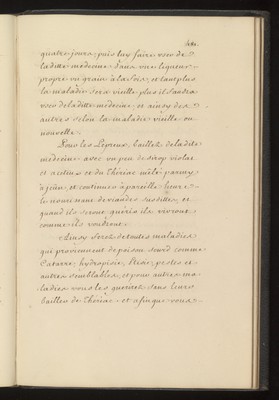 quatre jours, puis luy faire user de
laditte medecine dans une liqueur
propre un grain à la fois, et tant plus
la maladie sera vieille plus il faudra
user de laditte medecine et ainsy des
autres selon la maladie vieille ou
nouvelle.
Pour les Lepreux, baillez de ladite
medecine avec un peu de sirop violat
et acetus et du Theriac mêlé parmy
à jeûn, et continués à pareille heure,
le nourissant de viandes susdittes, et
quand ils seront gueris ils vivront
comme ils voudront.
Ainsy serés de toutes maladies
qui proviennent de poison seurd comme
Catarre, hydropisie, Etesie, pestes et
autres semblables, et pour autres ma
ladies vous les guerirez sans leurs
bailler de Theriac et afin que vous